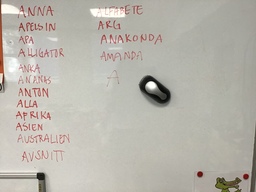 ANNA
APELSIN
APA
ALLIGATOR
ANKA
ANANAS
ANTON
ALLA
AFRIKA
ASIEN
AUSTRALIEN
AVSNITT
ALFABETE
ARG
ANAKONDA
AMANDA
A